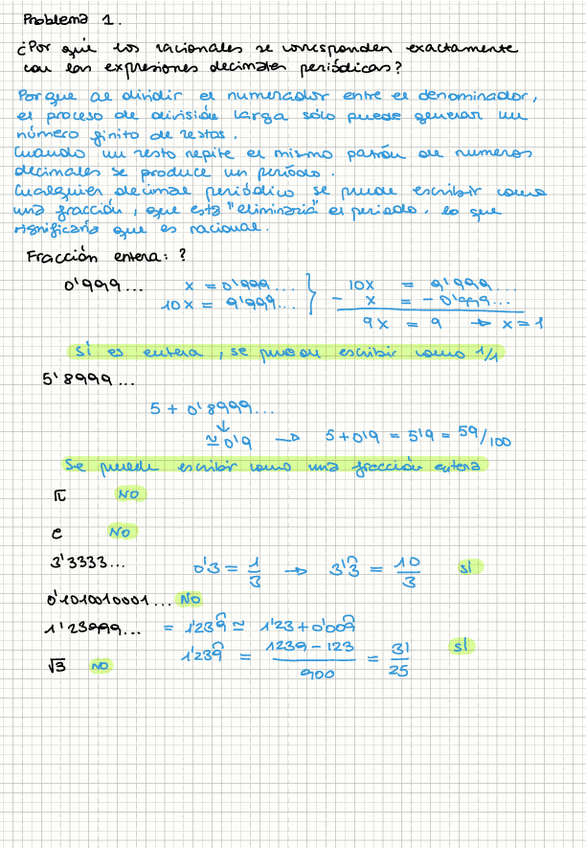 Problema 1.
¿Por qué los racionales se corresponden exactamente
con las expresiones decimales periódicas?
Porque al dividir el numerador entre el denominador,
el proceso de división larga sólo puede generar un
número finito de restos.
Cuando un resto repite el mismo patrón de numeros
decimales se produce un período.
Cualquier decimal periódico se puede escribir como
una fracción, que esta "eliminaría" el periodo, lo que
significaría que es racional.
Fracción entera: ?
0'999... x = 0'999... } 10x = 9'999...
10x = 9'999... - x = -0'999...
9x = 9 → x=1
Sí es entera, se puede escribir como 1/1
5'8999...
5 + 0'8999...
↓
≃ 0'9 → 5+0'9 = 5'9 = 59/100
Se puede escribir como una fracción entera
π NO
e NO
3'3333... 0'3 = 1/3 → 3'3̂ = 10/3 sí
0'1010010001... NO
1'23999... = 1'239̂ ≃ 1'23 + 0'009̂
1'239̂ = 1239-123/900 = 31/25 sí
√3 NO